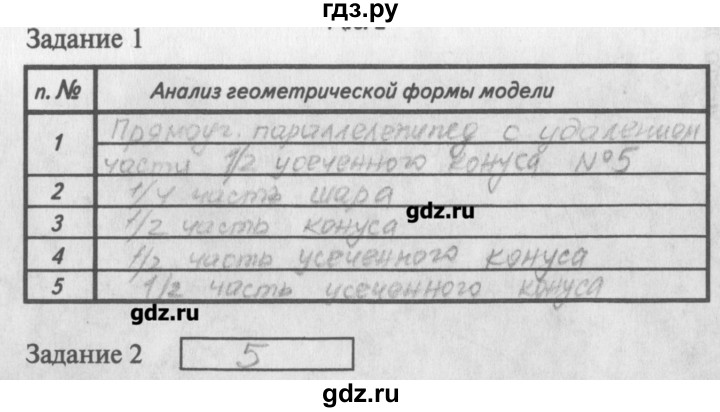 гдз.ру
Задание 1
п. № Анализ геометрической формы модели
1 Прямоуг. параллелепипед с удалением
части 1/2 усеченного конуса №5
2 1/4 часть шара
gdz.ru
3 1/2 часть конуса
4 1/2 часть усеченного конуса
5 1/2 часть усеченного конуса
gdz.ru
Задание 2 5
gdz.ru